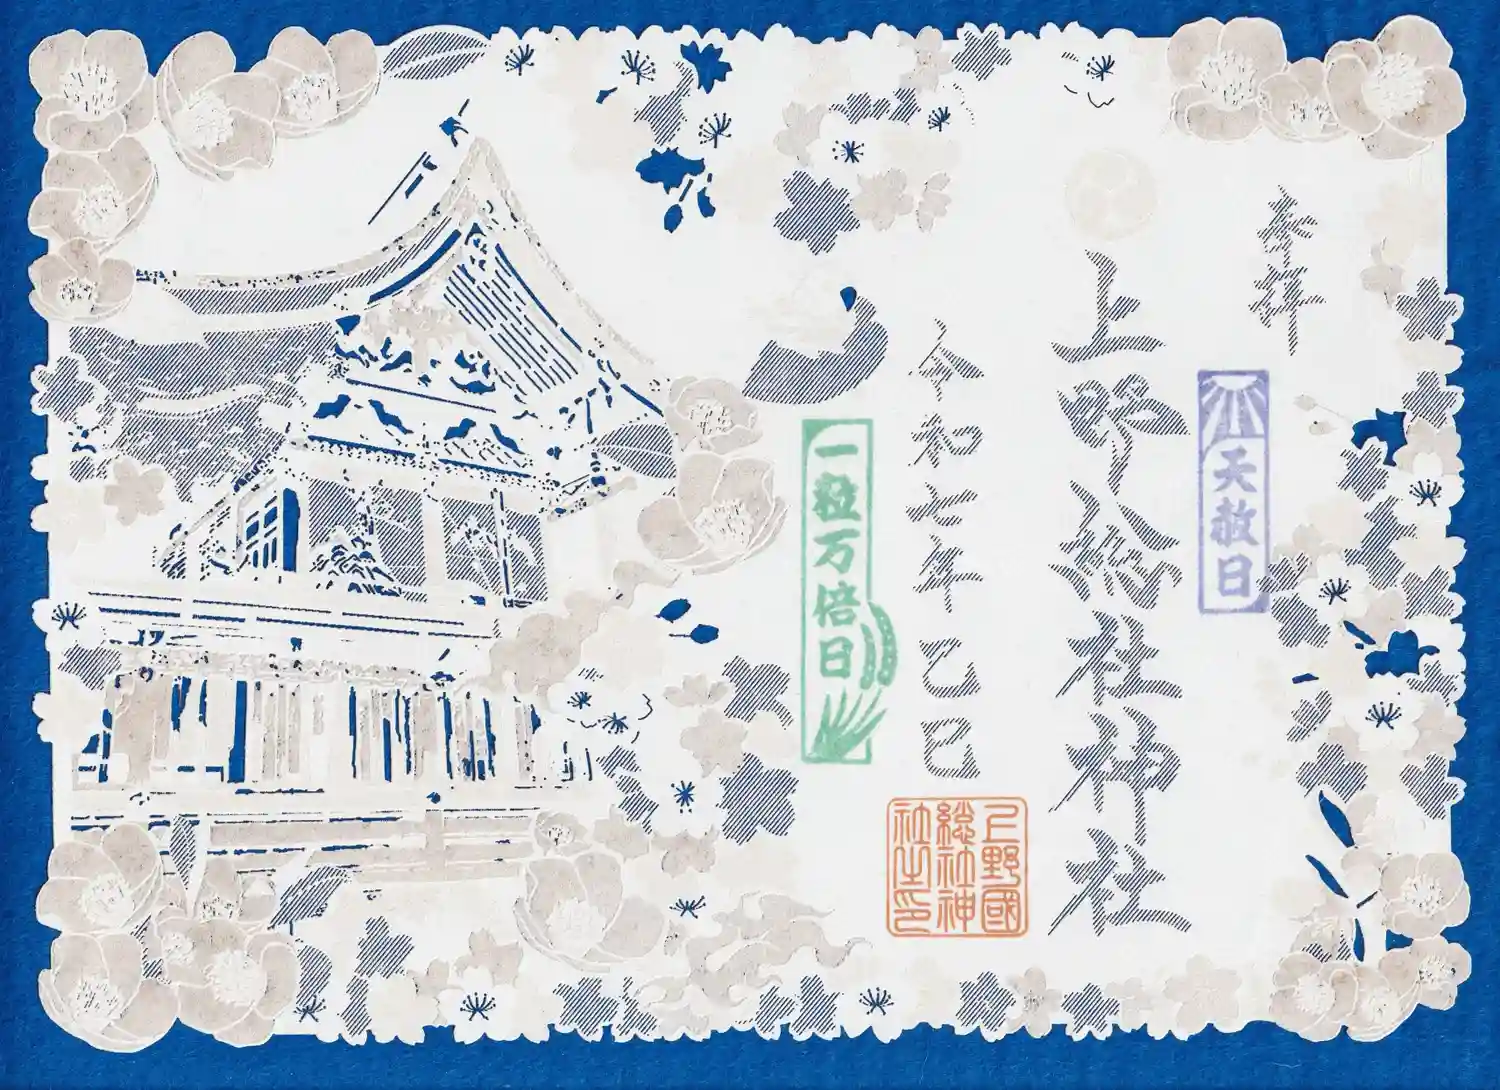 奉拝
天赦日
上野総社神社
令和七年 乙巳
一粒万倍日
上野國
総社神
社之印